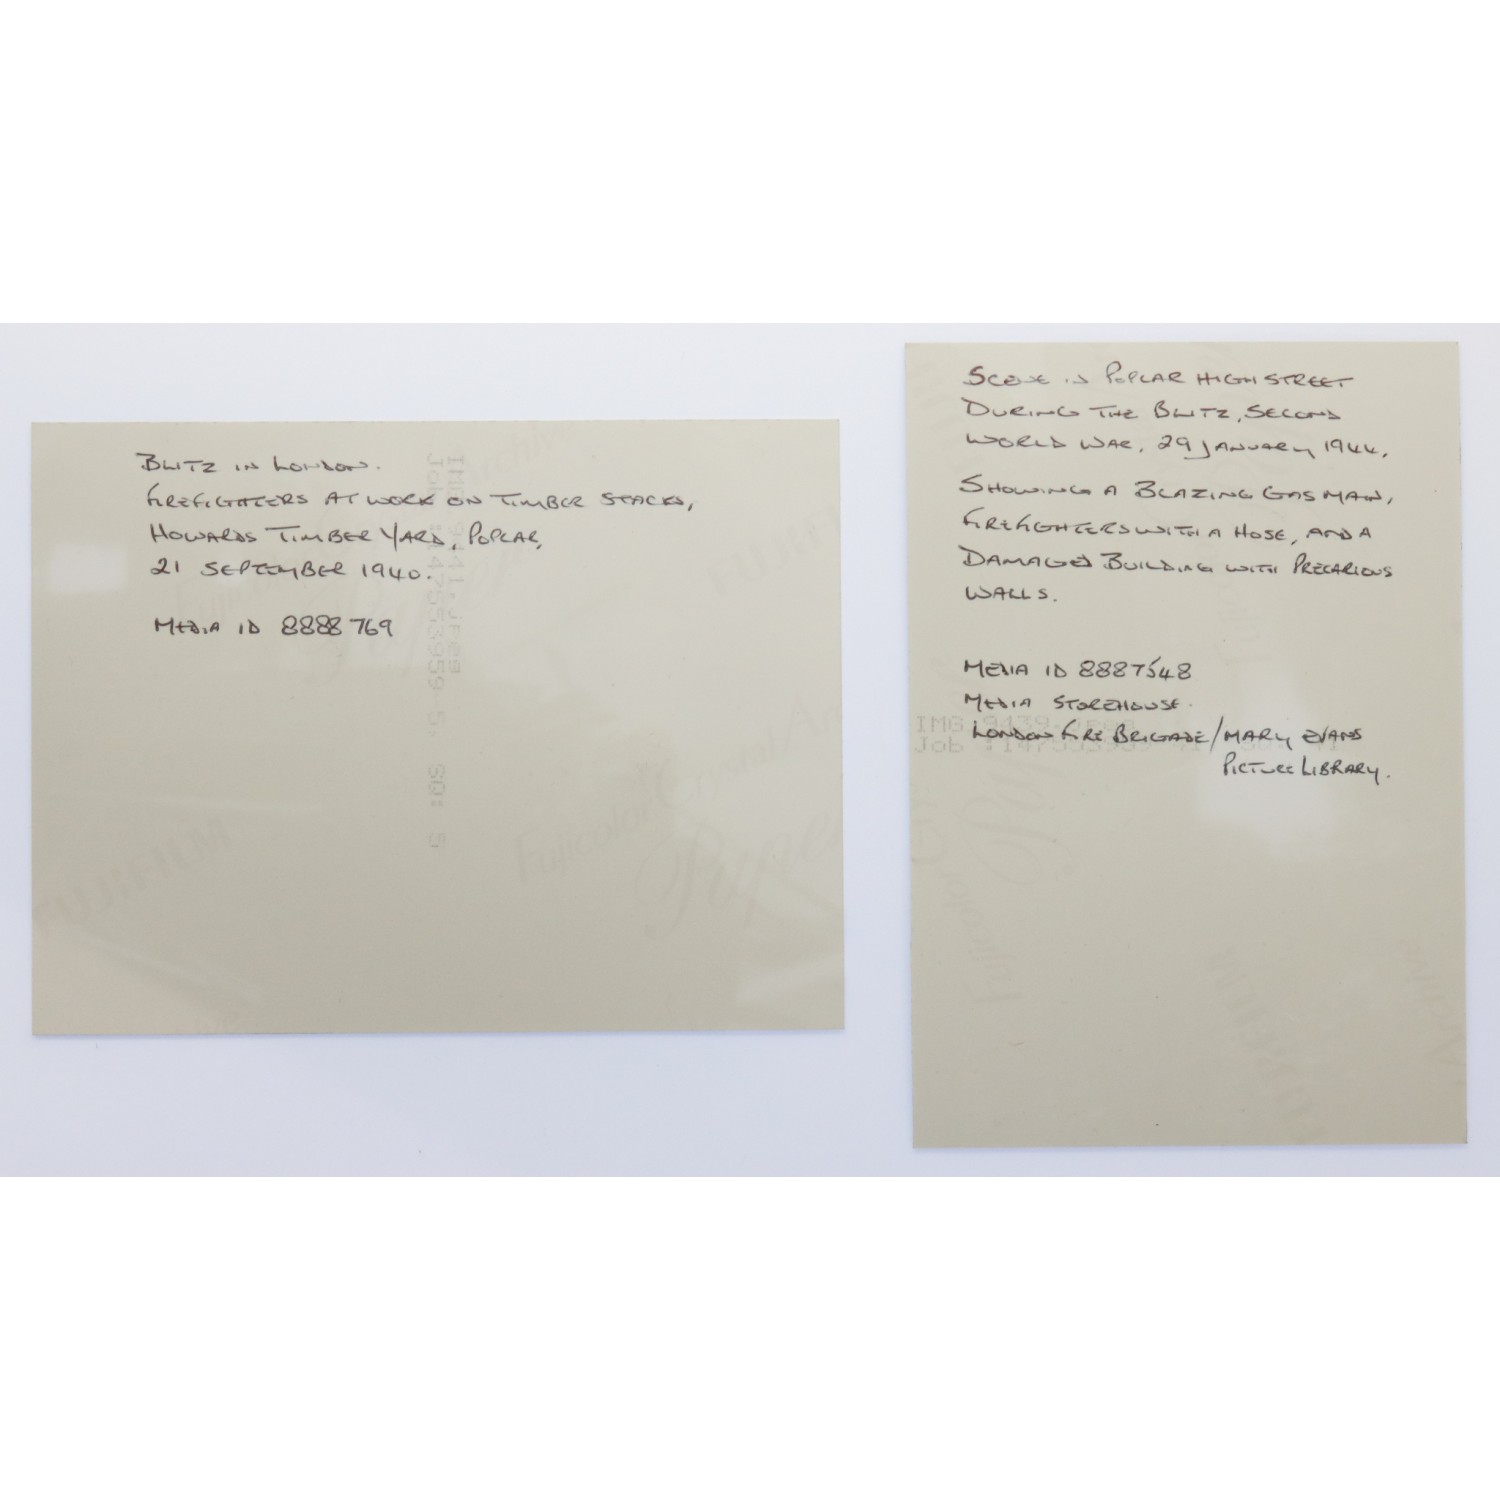 BLITZ IN LONDON.
FIREFIGHTERS AT WORK ON TIMBER STACKS,
HOWARDS TIMBER YARD, POPLAR,
21 SEPTEMBER 1940.
MEDIA ID 8888769
FUJIFILM
Fujicolor Crystal Ar
SCENE IN POPLAR HIGH STREET
DURING THE BLITZ, SECOND
WORLD WAR, 29 JANUARY 1944,
SHOWING A BLAZING GAS MAIN,
FIREFIGHTERS WITH A HOSE, AND A
DAMAGED BUILDING WITH PRECARIOUS
WALLS.
MEDIA ID 8887548
MEDIA STOREHOUSE.
LONDON FIRE BRIGADE/MARY EVANS
PICTURE LIBRARY.